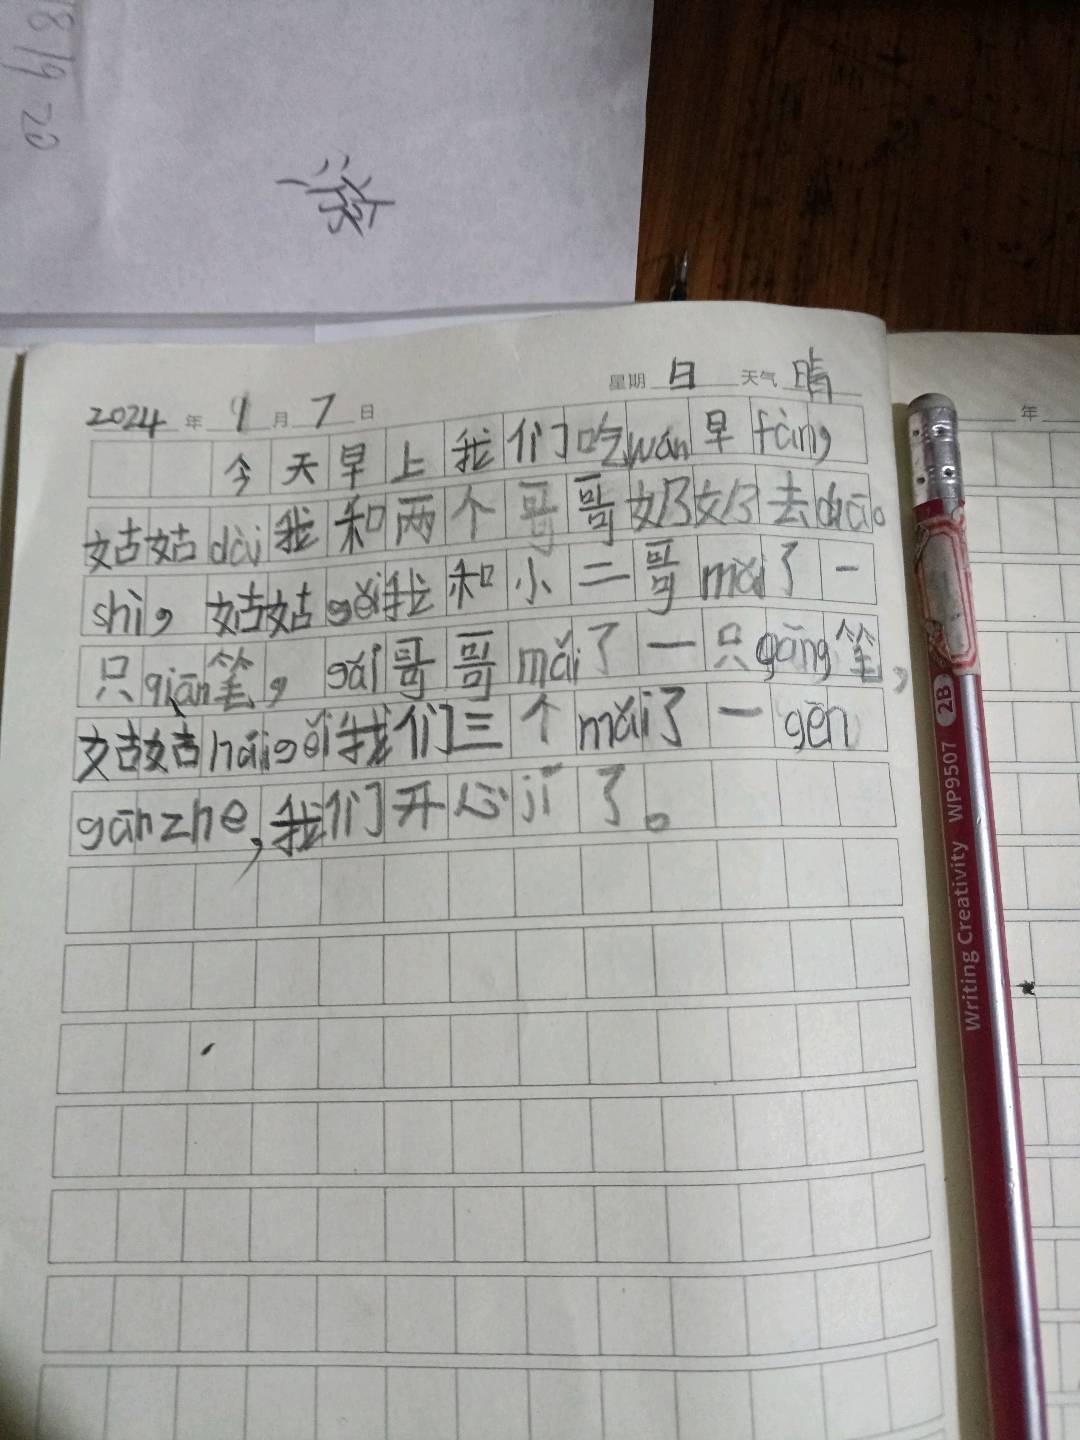 18 19 20
2024 年 1 月 7 日 星期 日 天气 晴
今天早上我们吃wán早fàn,
姑姑dài我和两个哥哥奶奶去chāo
shì, 姑姑gěi我和小二哥mǎi了一
只qiān笔, gěi哥哥mǎi了一只gāng笔,
姑姑hái gěi我们三个mǎi了一gēn
gānzhe,我们开心jí了。
年
Writing Creativity WP9507 2B